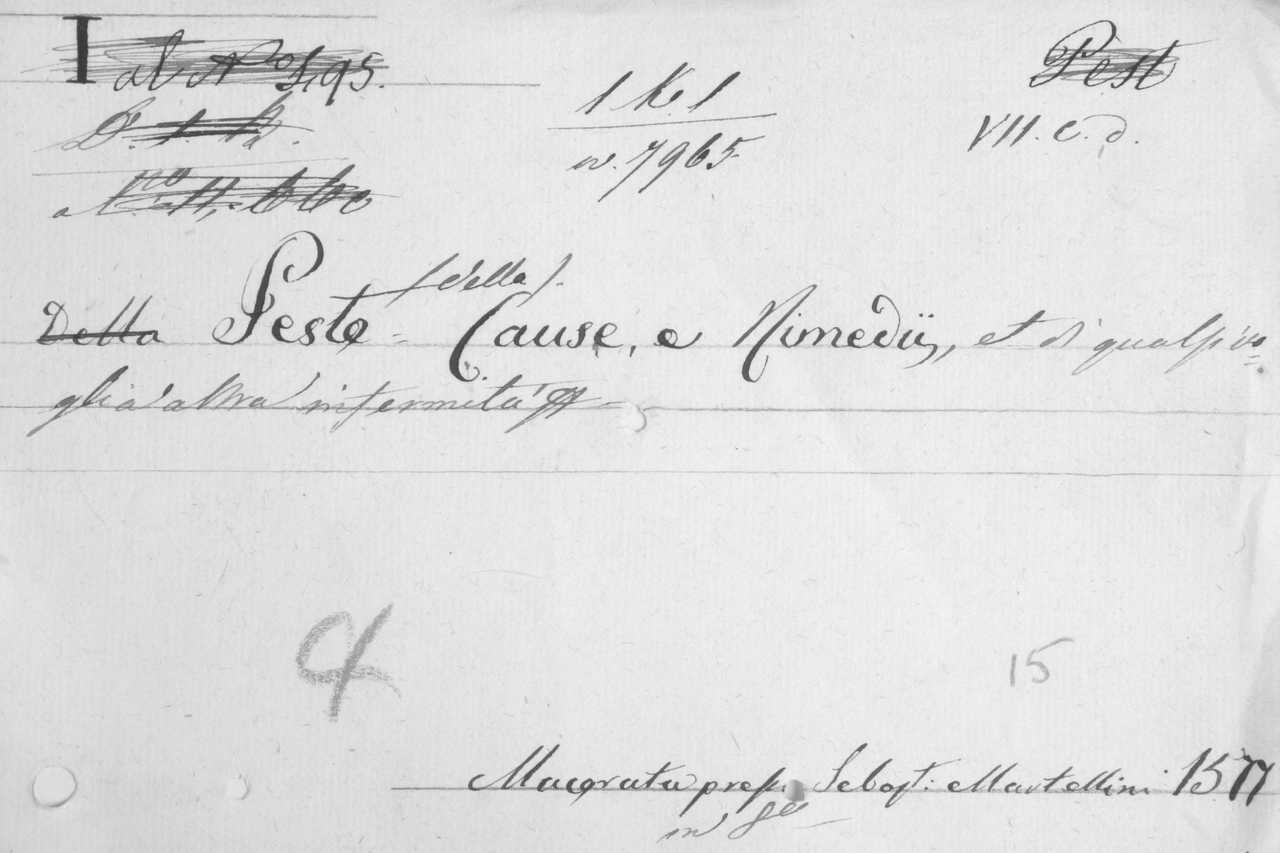 Tab N° I, 95. Pest
1 K 1
n. 7965. VII. C. d.
Della Peste (della). Cause, e Rimedii, et di qualsivo-
glia altra infermità
4
15
Macerata press. Sebast. Martellini 1577
in 8°